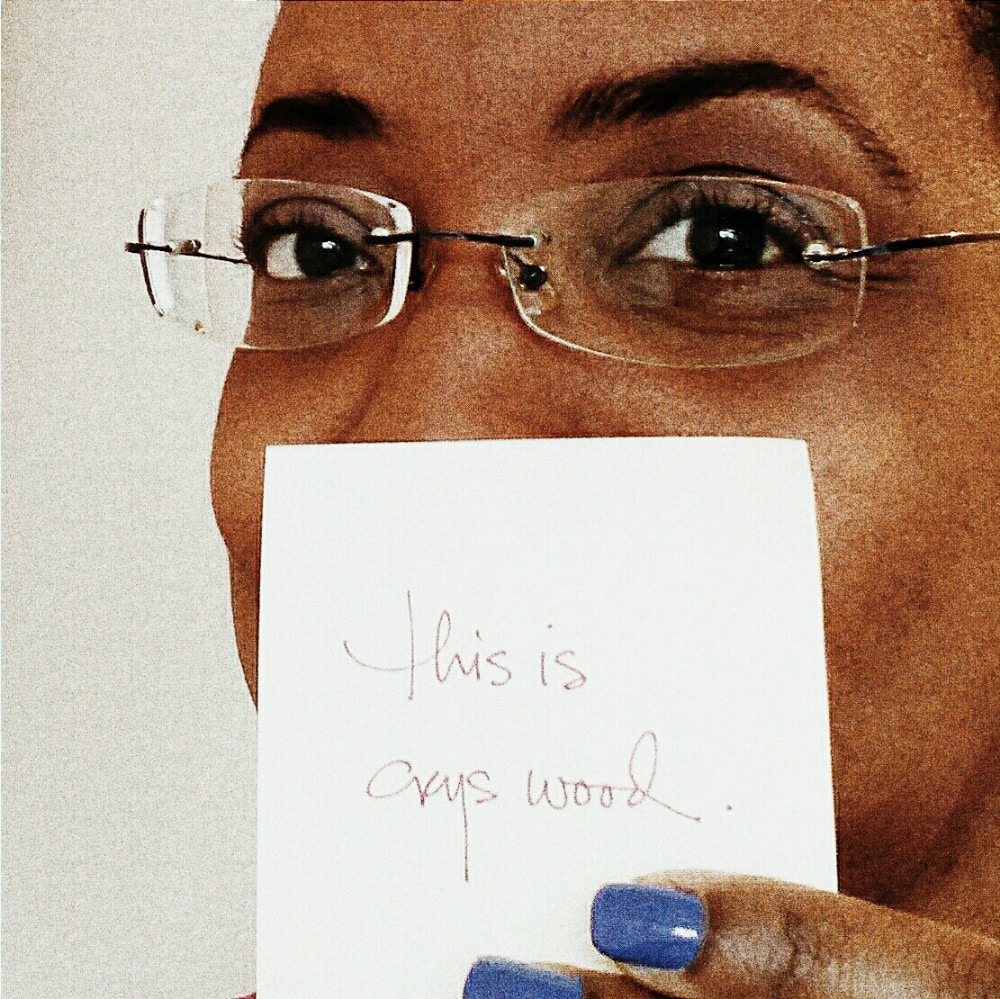 this is
crys wood.